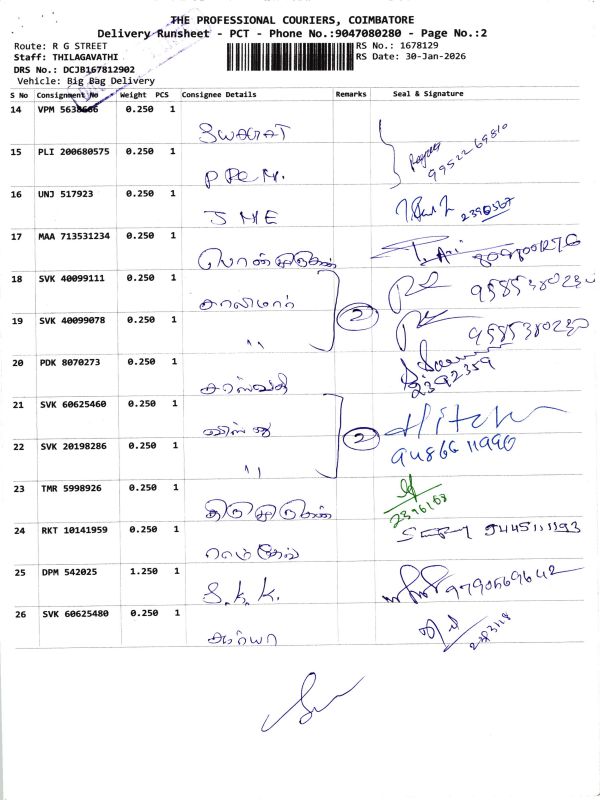 THE PROFESSIONAL COURIERS, COIMBATORE
Delivery Runsheet - PCT - Phone No.:9047080280 - Page No.:2
Route: R G STREET RS No.: 1678129
Staff: THILAGAVATHI RS Date: 30-Jan-2026
DRS No.: DCJB167812902
Vehicle: Big Bag Delivery
S No Consignment No Weight PCS Consignee Details Remarks Seal & Signature
14 VPM 5638666 0.250 1
SWAGAT
15 PLI 200680575 0.250 1 9952269810
P P C M.
16 UNJ 517923 0.250 1
J M E 2390567
17 MAA 713531234 0.250 1
பொன்முருகன்
18 SVK 40099111 0.250 1
சாலிமார் 2 9585380230
19 SVK 40099078 0.250 1
" 9585380230
20 PDK 8070273 0.250 1
சரஸ்வதி 2392359
21 SVK 60625460 0.250 1
விஸ்ணு 2 Hitesh
22 SVK 20198286 0.250 1 9486611990
"
23 TMR 5998926 0.250 1
திருமுருகன் 2396168
24 RKT 10141959 0.250 1 9445111193
ராம்தேவ்
25 DPM 542025 1.250 1 9790569642
S. K. K.
26 SVK 60625480 0.250 1
சூர்யா